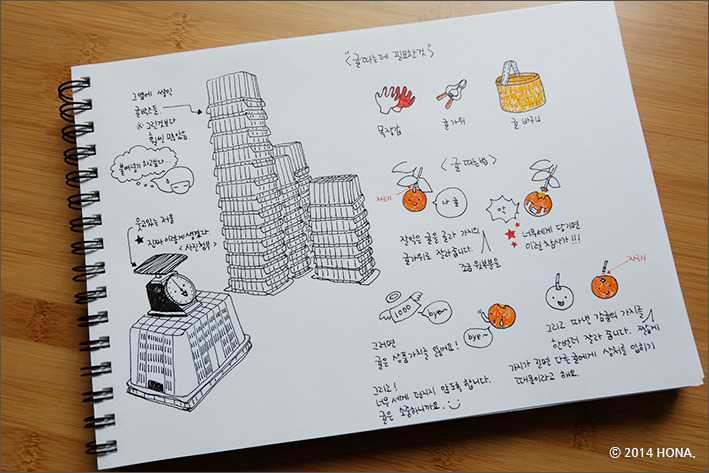 "귤따는데 필요한것"
목장갑
귤가위
귤 바구니
그옆에 쌓인
귤박스들.
※ 그린것보다
훨씬 많았음.
<귤 따는법>
자르기
나 귤
악
잘익은 귤을 골라 가지의
귤가위로 잘라줍니다.
조금 윗부분을
너무세게 당기면
이런 참사가!!!
무고있는 저울
진짜 이렇게 생겼다.
<사진첨부>
1000
bye~
bye~
자르기
그러면
귤은 상품가치를 잃어요!
그리고!
너무 세게 던지지 않도록 합니다.
귤은 소중하니까요.
그리고 따낸 감귤의 가지를
한번더 잘라 줍니다. 짧게
가지가 길면 다른 귤에게 상처를 입히기
때문이라고 해요.
© 2014 HONA.